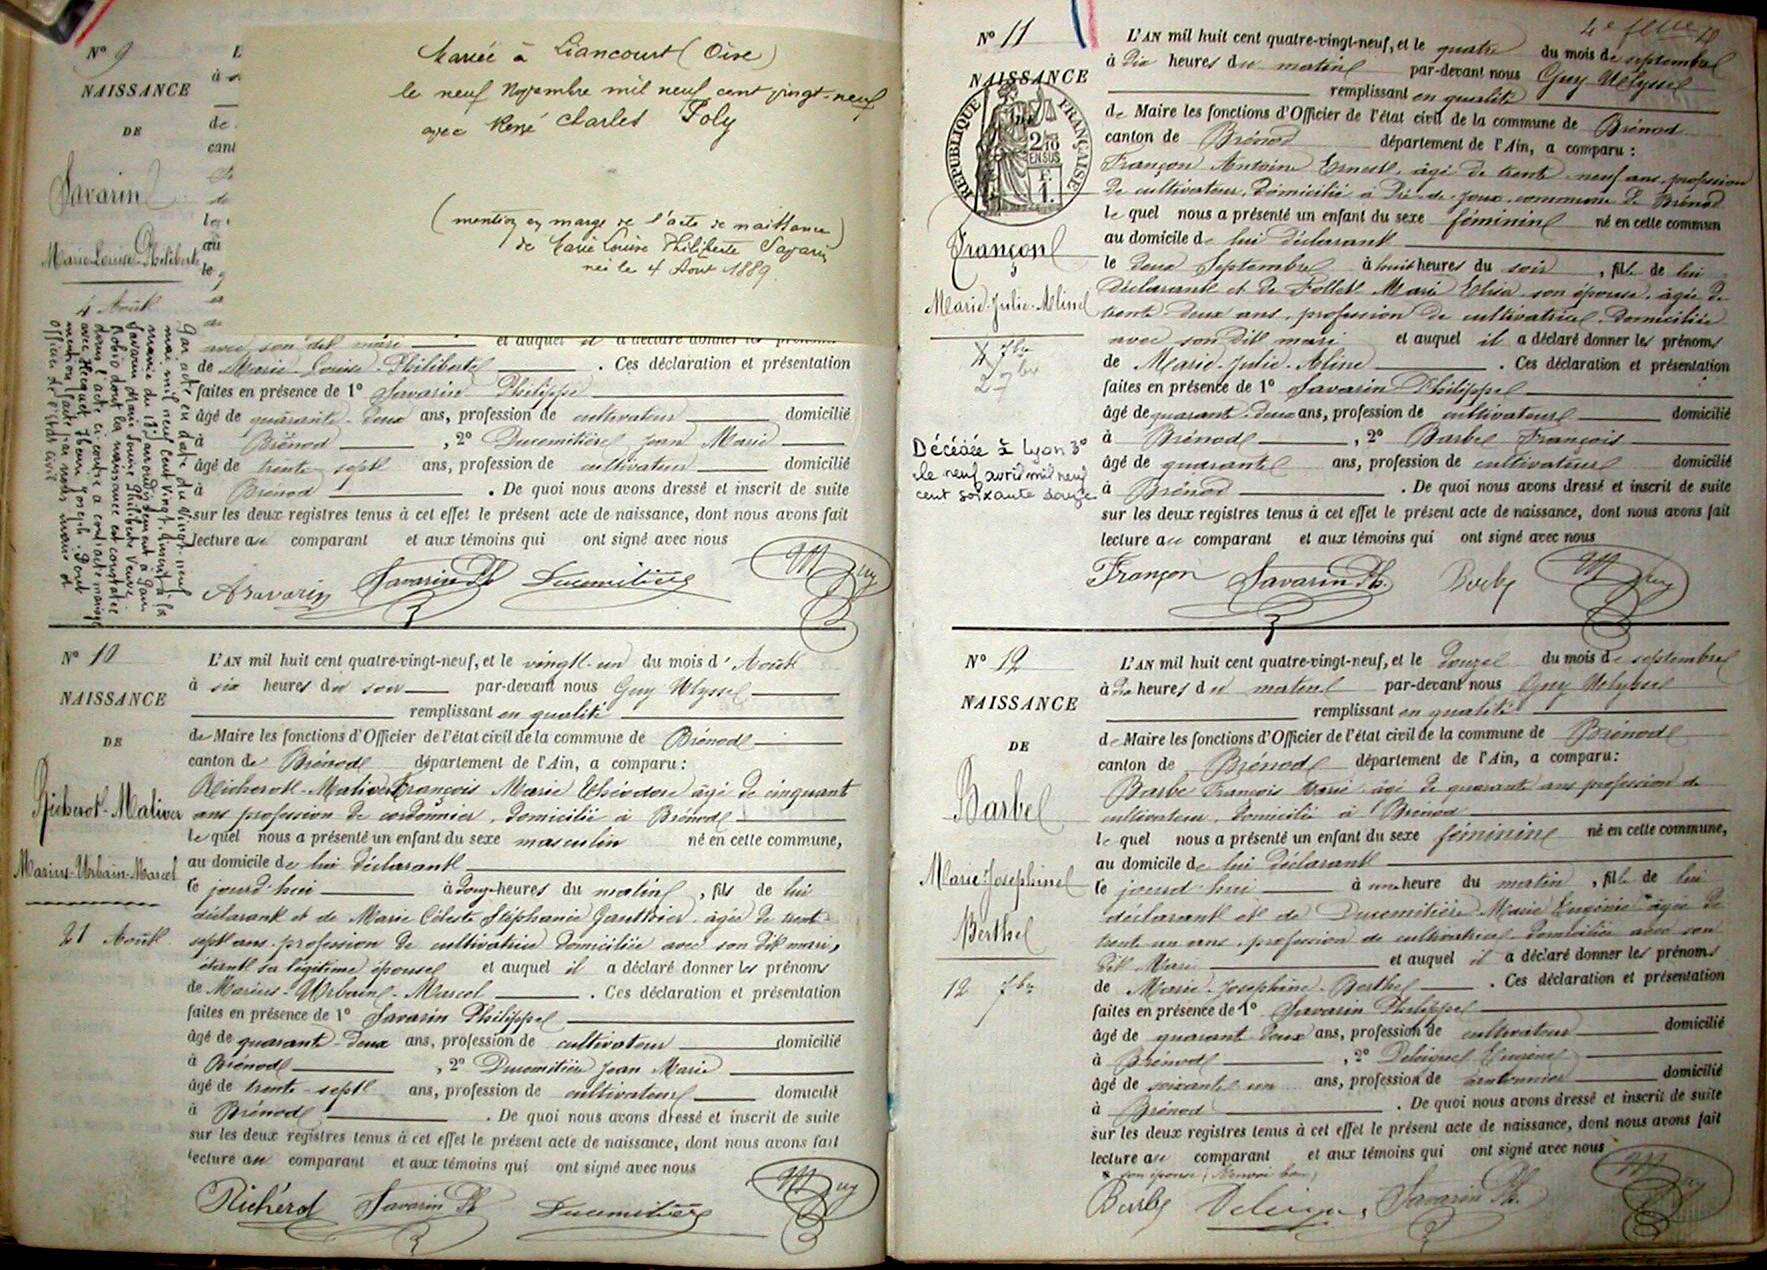 N° 9
NAISSANCE
DE
Savarin
Marie-Louise-Philiberte
4 Août
Mariée à Liancourt (Oise)
le neuf Novembre mil neuf cent vingt-neuf
avec René Charles Joly
(mention en marge de l'acte de naissance
de Marie Louise Philiberte Savarin)
née le 4 Aout 1889
Par acte en date du vingt-neuf
mai mil neuf cent vingt
mairie du 12e arrondissement à
Savarin Marie Louise Philiberte Veuve
Robin dont la naissance est constatée
dans l'acte ci-contre a contracté mariage
avec Hecquet Henri Joseph. Dont
mention faite par nous, maire et
officier de l'état civil
avec son dit mari et auquel il a déclaré donner les prénoms
de Marie Louise Philiberte . Ces déclaration et présentation
faites en présence de 1° Savarin Philippe
âgé de quarante-deux ans, profession de cultivateur domicilié
à Brénod , 2° Ducomitière Jean Marie
âgé de trente sept ans, profession de cultivateur domicilié
à Brénod . De quoi nous avons dressé et inscrit de suite
sur les deux registres tenus à cet effet le présent acte de naissance, dont nous avons fait
lecture au comparant et aux témoins qui ont signé avec nous
A Savarin Savarin Ph Ducomitière Guy
N° 10
NAISSANCE
DE
Richerot-Mativer
Marius-Urbain-Marcel
21 Août
L'AN mil huit cent quatre-vingt-neuf, et le vingt-un du mois d'Août
à six heures du soir par-devant nous Guy Ulysse
remplissant en qualité
de Maire les fonctions d'Officier de l'état civil de la commune de Brénod
canton de Brénod département de l'Ain, a comparu :
Richerot-Mativer François Marie Théodore âgé de cinquant
ans profession de cordonnier, domicilié à Brénod
lequel nous a présenté un enfant du sexe masculin né en cette commune,
au domicile de lui déclarant
ce jourd'hui à douze heures du matin, fils de lui
déclarant et de Marie Céleste Stéphanie Gauthier âgée de trent
sept ans profession de cultivatrice domiciliée avec son dit mari,
étant sa légitime épouse et auquel il a déclaré donner les prénoms
de Marius-Urbain-Marcel . Ces déclaration et présentation
faites en présence de 1° Savarin Philippe
âgé de quarante-deux ans, profession de cultivateur domicilié
à Brénod , 2° Ducomitière Jean Marie
âgé de trente-sept ans, profession de cultivateur domicilié
à Brénod . De quoi nous avons dressé et inscrit de suite
sur les deux registres tenus à cet effet le présent acte de naissance, dont nous avons fait
lecture au comparant et aux témoins qui ont signé avec nous
Richérot Savarin Ph Ducomitière Guy
4e feuillet
N° 11
NAISSANCE
RÉPUBLIQUE FRANÇAISE
2/10
EN SUS
F.
1.
Françon
Marie-Julie-Aline
4 7bre
2 7bre
Décédée à Lyon 3°
le neuf avril mil neuf
cent soixante douze
L'AN mil huit cent quatre-vingt-neuf, et le quatre du mois de septembre
à dix heures du matin par-devant nous Guy Ulysse
remplissant en qualité
de Maire les fonctions d'Officier de l'état civil de la commune de Brénod
canton de Brénod département de l'Ain, a comparu :
Françon Antoine Ernest, âgé de trente-neuf ans, profession
de cultivateur, domicilié à Pré-de-Joux, commune de Brénod
lequel nous a présenté un enfant du sexe féminin né en cette commun
au domicile de lui déclarant
le deux Septembre à huit heures du soir, fille de lui
déclarant et de Follet Marie Elisa son épouse, âgée de
trente-deux ans, profession de cultivatrice, domiciliée
avec son dit mari et auquel il a déclaré donner les prénoms
de Marie-Julie-Aline . Ces déclaration et présentation
faites en présence de 1° Savarin Philippe
âgé de quarant-deux ans, profession de cultivateur domicilié
à Brénod , 2° Barbe François
âgé de quarante ans, profession de cultivateur domicilié
à Brénod . De quoi nous avons dressé et inscrit de suite
sur les deux registres tenus à cet effet le présent acte de naissance, dont nous avons fait
lecture au comparant et aux témoins qui ont signé avec nous
Françon Savarin Ph. Barbe Guy
N° 12
NAISSANCE
DE
Barbe
Marie-Josephine
Berthe
12 7bre
L'AN mil huit cent quatre-vingt-neuf, et le douze du mois de septembre
à dix heures du matin par-devant nous Guy Ulysse
remplissant en qualité
de Maire les fonctions d'Officier de l'état civil de la commune de Brénod
canton de Brénod département de l'Ain, a comparu :
Barbe François Marie âgé de quarante ans profession de
cultivateur, domicilié à Brénod
lequel nous a présenté un enfant du sexe féminin né en cette commune,
au domicile de lui déclarant
ce jourd'hui à une heure du matin, fille de lui
déclarant et de Ducomitière Marie Eugénie * âgée de
trente un ans, profession de cultivatrice domiciliée avec son
dit Mari et auquel il a déclaré donner les prénoms
de Marie-Josephine-Berthe . Ces déclaration et présentation
faites en présence de 1° Savarin Philippe
âgé de quarant deux ans, profession de cultivateur domicilié
à Brénod , 2° Eugène
âgé de soixante un ans, profession de cantonnier domicilié
à Brénod . De quoi nous avons dressé et inscrit de suite
sur les deux registres tenus à cet effet le présent acte de naissance, dont nous avons fait
lecture au comparant et aux témoins qui ont signé avec nous
* son épouse (Renvoi bon)
Barbe Savarin Ph. Guy